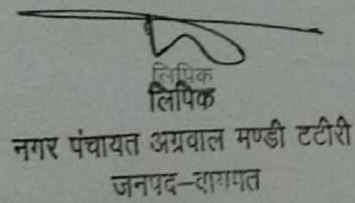 लिपिक
लिपिक
नगर पंचायत अग्रवाल मण्डी टटीरी
जनपद-बागपत